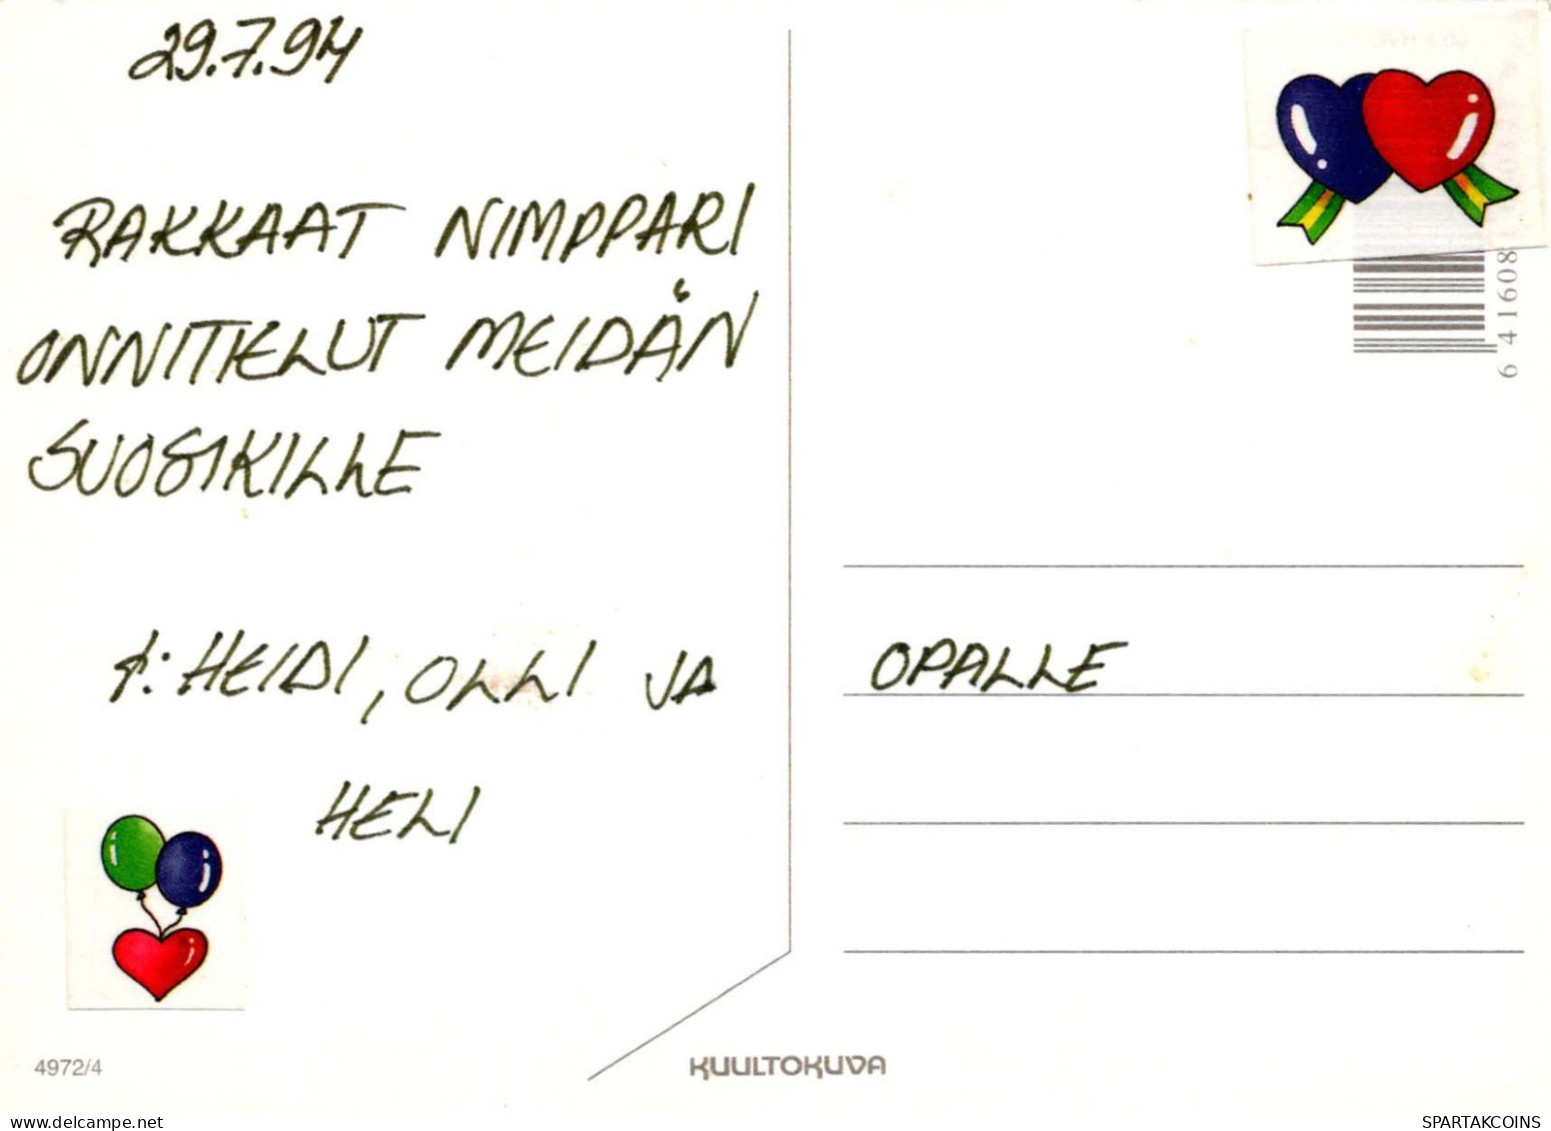 29.7.94
RAKKAAT NIMPPARI
ONNITTELUT MEIDÄN
SUOSIKILLE
t: HEIDI, OLLI JA
HELI
OPALLE
6 41608
4972/4
KUULTOKUVA
oldthing.net
SPARTAKCOINS